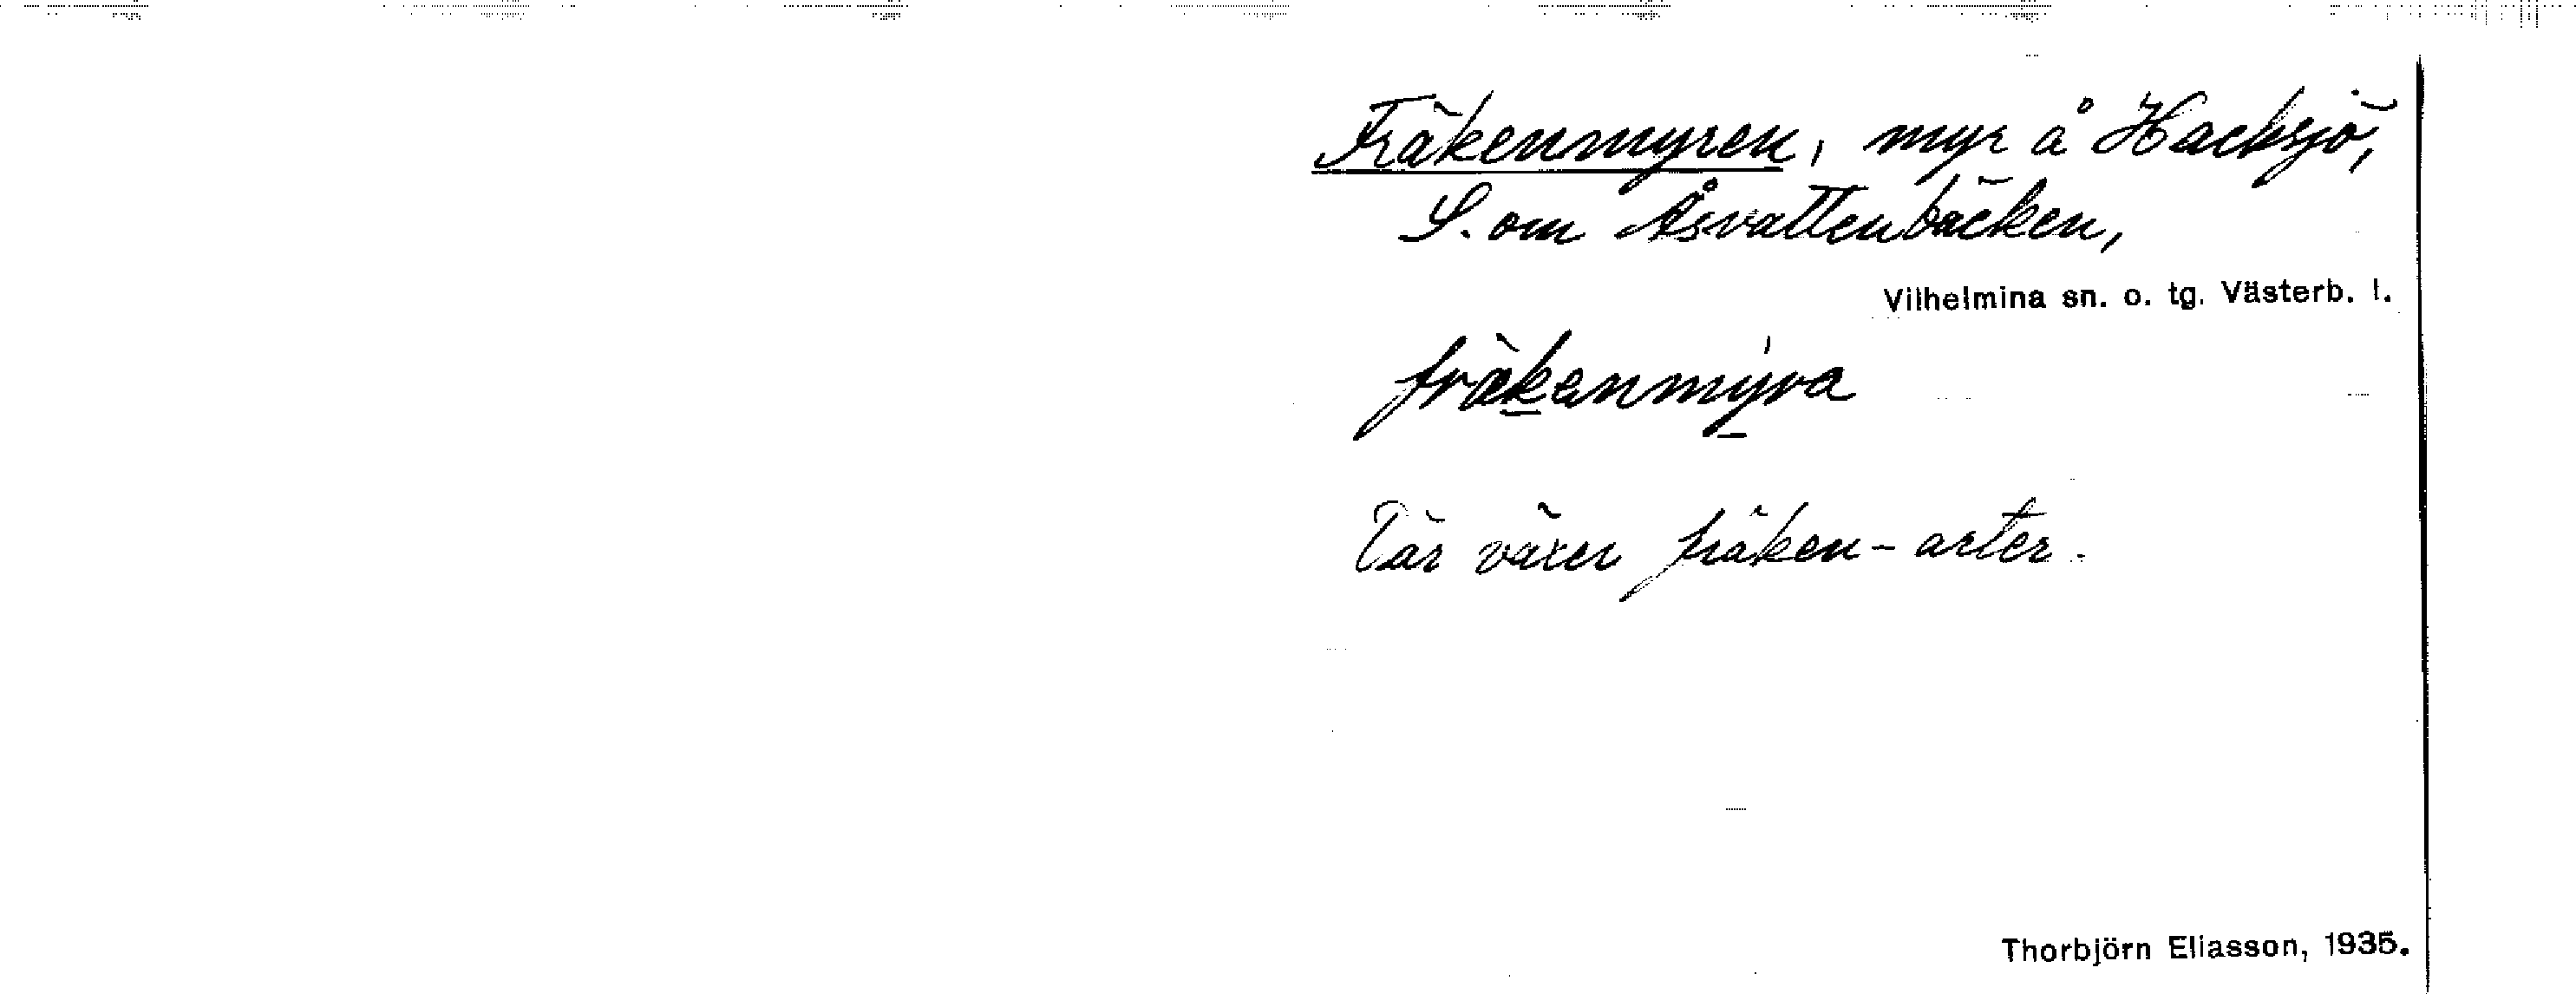 Fräkenmyren, myr å Hacksjö,
S. om Åsvattenbäcken,
Vilhelmina sn. o. tg. Västerb. l.
fräkenmýra
Där växer fräken-arter.
Thorbjörn Eliasson, 1935.